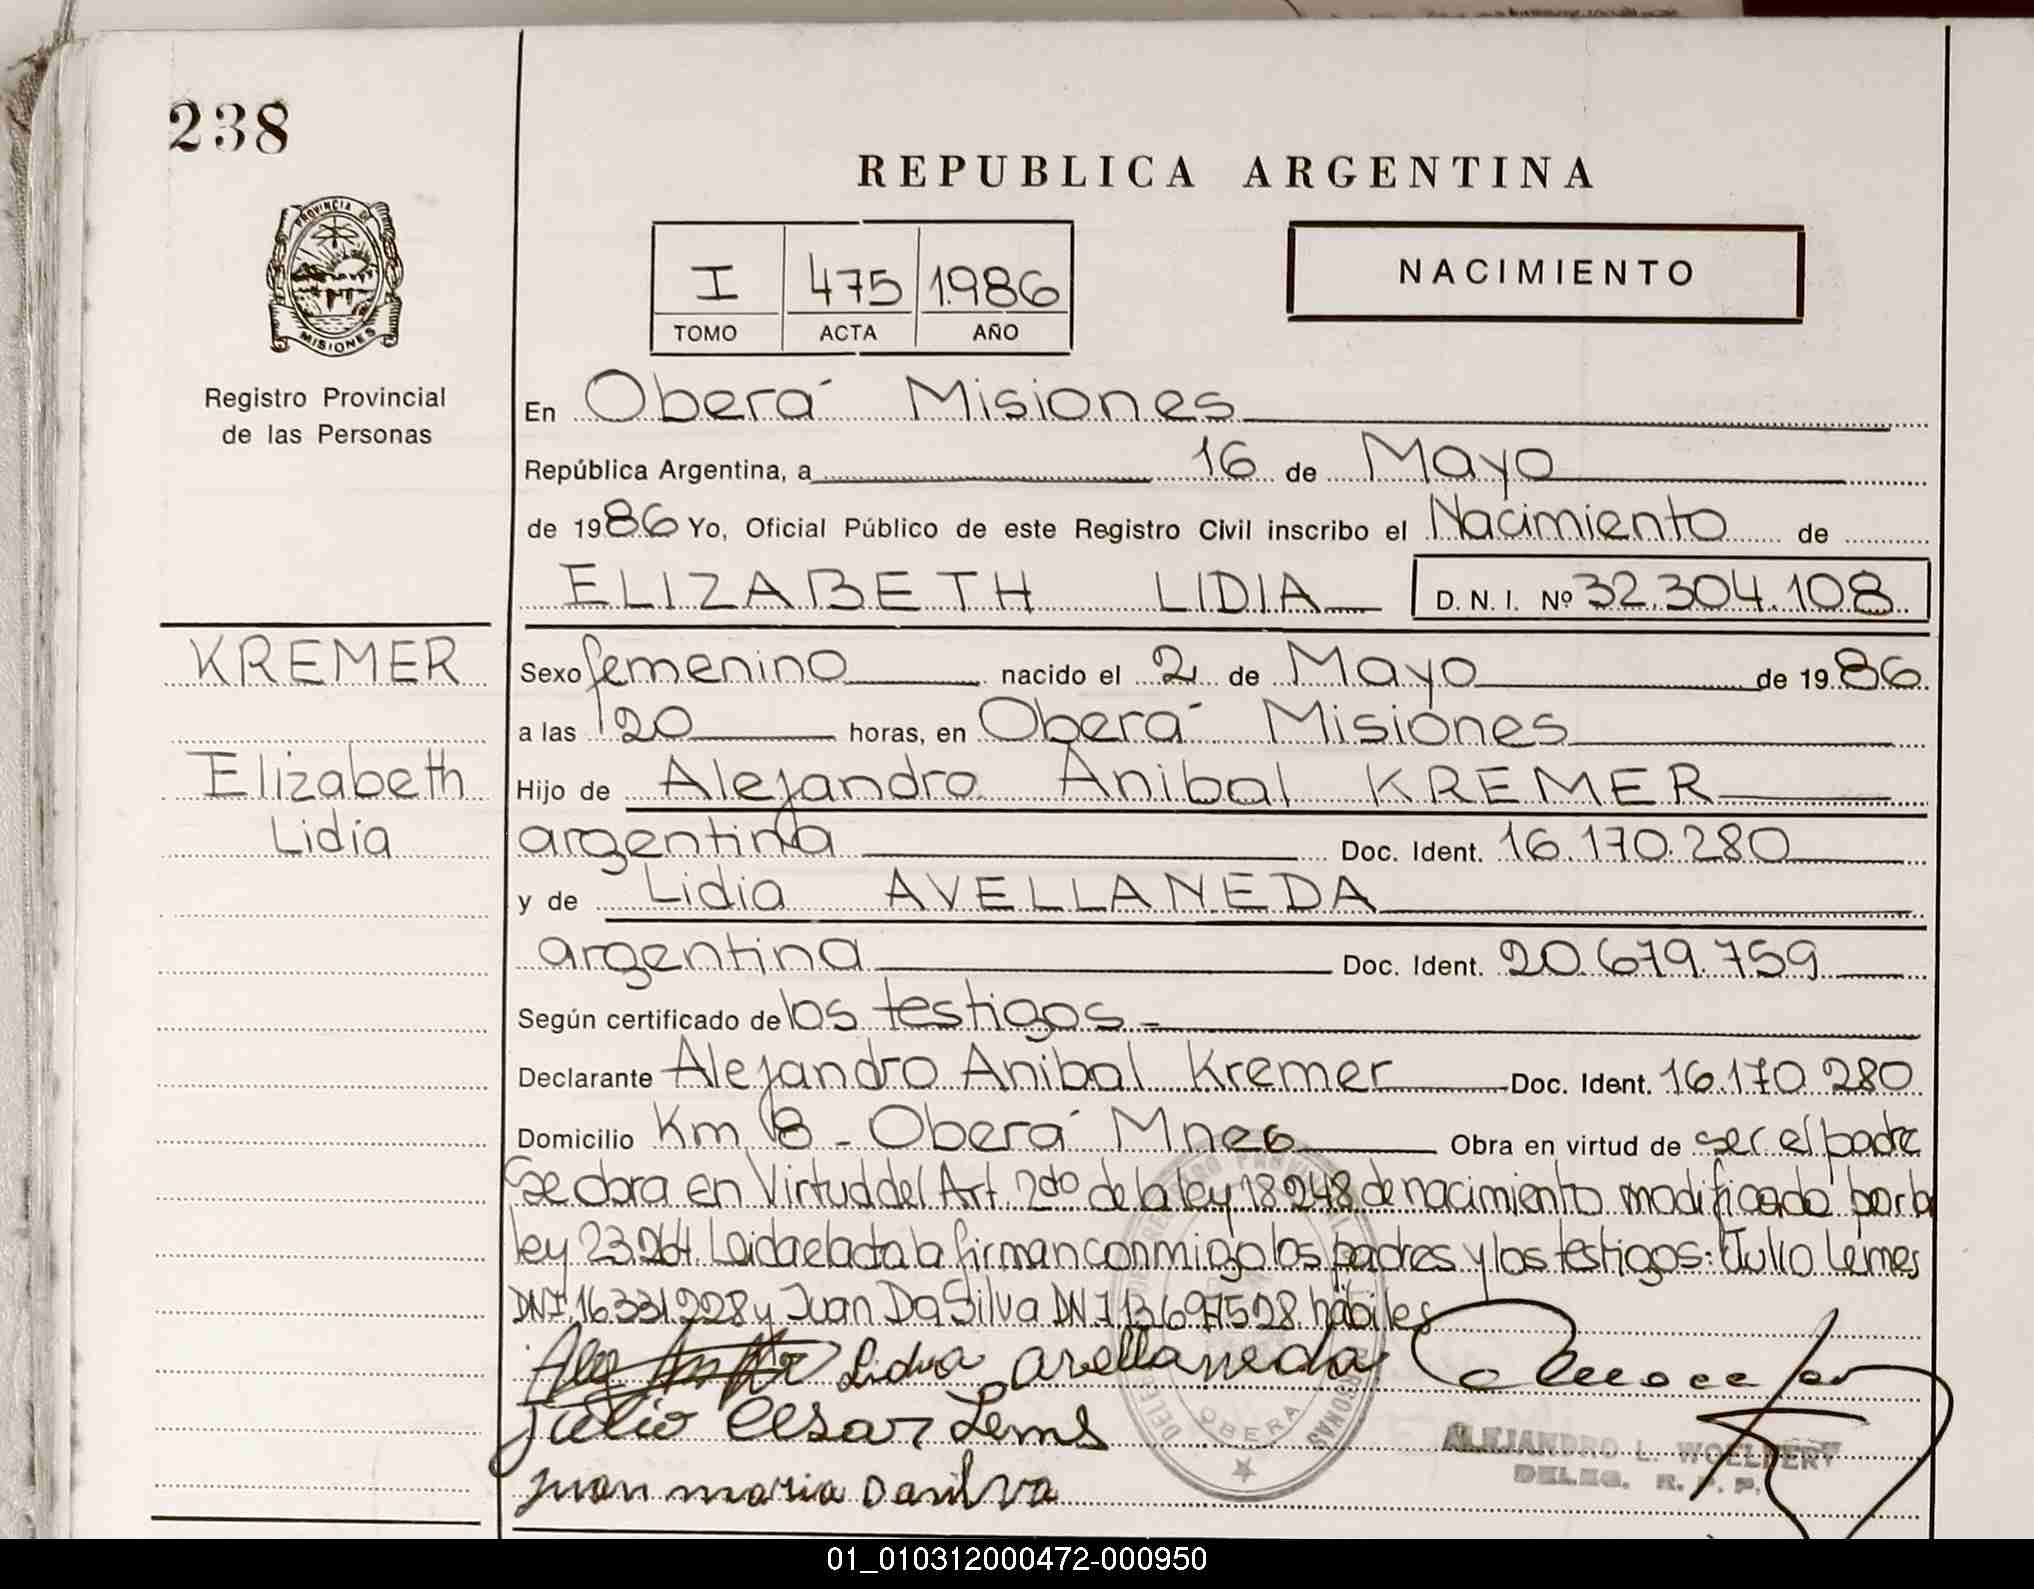 238
REPUBLICA ARGENTINA
PROVINCIA DE
MISIONES
Registro Provincial
de las Personas
I 475 1986
TOMO ACTA AÑO
NACIMIENTO
En Oberá Misiones
República Argentina, a 16 de Mayo
de 1986 Yo, Oficial Público de este Registro Civil inscribo el Nacimiento de
ELIZABETH LIDIA D. N. I. Nº 32.304.108
KREMER
Elizabeth
Lidia
Sexo femenino nacido el 2 de Mayo de 1986
a las 20 horas, en Oberá Misiones
Hijo de Alejandro Anibal KREMER
argentina Doc. Ident. 16.170.280
y de Lidia AVELLANEDA
argentina Doc. Ident. 20.679.759
Según certificado de los testigos -
Declarante Alejandro Anibal Kremer Doc. Ident. 16.170.280
Domicilio Km 8 - Oberá Mnes Obra en virtud de ser el padre
Se obra en Virtud del Art. 2do de la ley 18.248 de nacimiento modificado por la
ley 23.264. Leida el acta la firman conmigo los padres y los testigos: Julio Lemes
DNI 16331.228 y Juan Da Silva DNI 13.697528 hábiles
Lidia avellaneda
Julio Cesar Lems
juan maria Dasilva
OBERA
ALEJANDRO L. WOELFERT
DELEG. R. P. P.
01_010312000472-000950